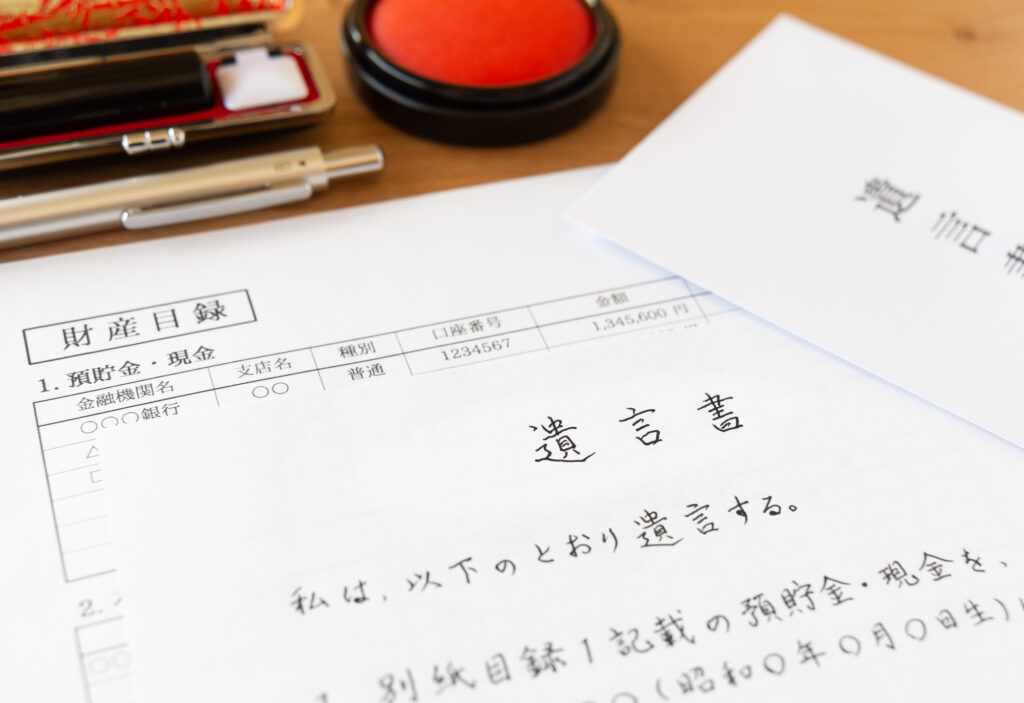 遺言
財産目録
1. 預貯金・現金
金融機関名 支店名 種別 口座番号 金額
○○○銀行 ○○ 普通 1234567 1,345,600 円
2.
遺言書
私は、以下のとおり遺言する。
別紙目録1記載の預貯金・現金を、
（昭和〇年〇月〇日生）